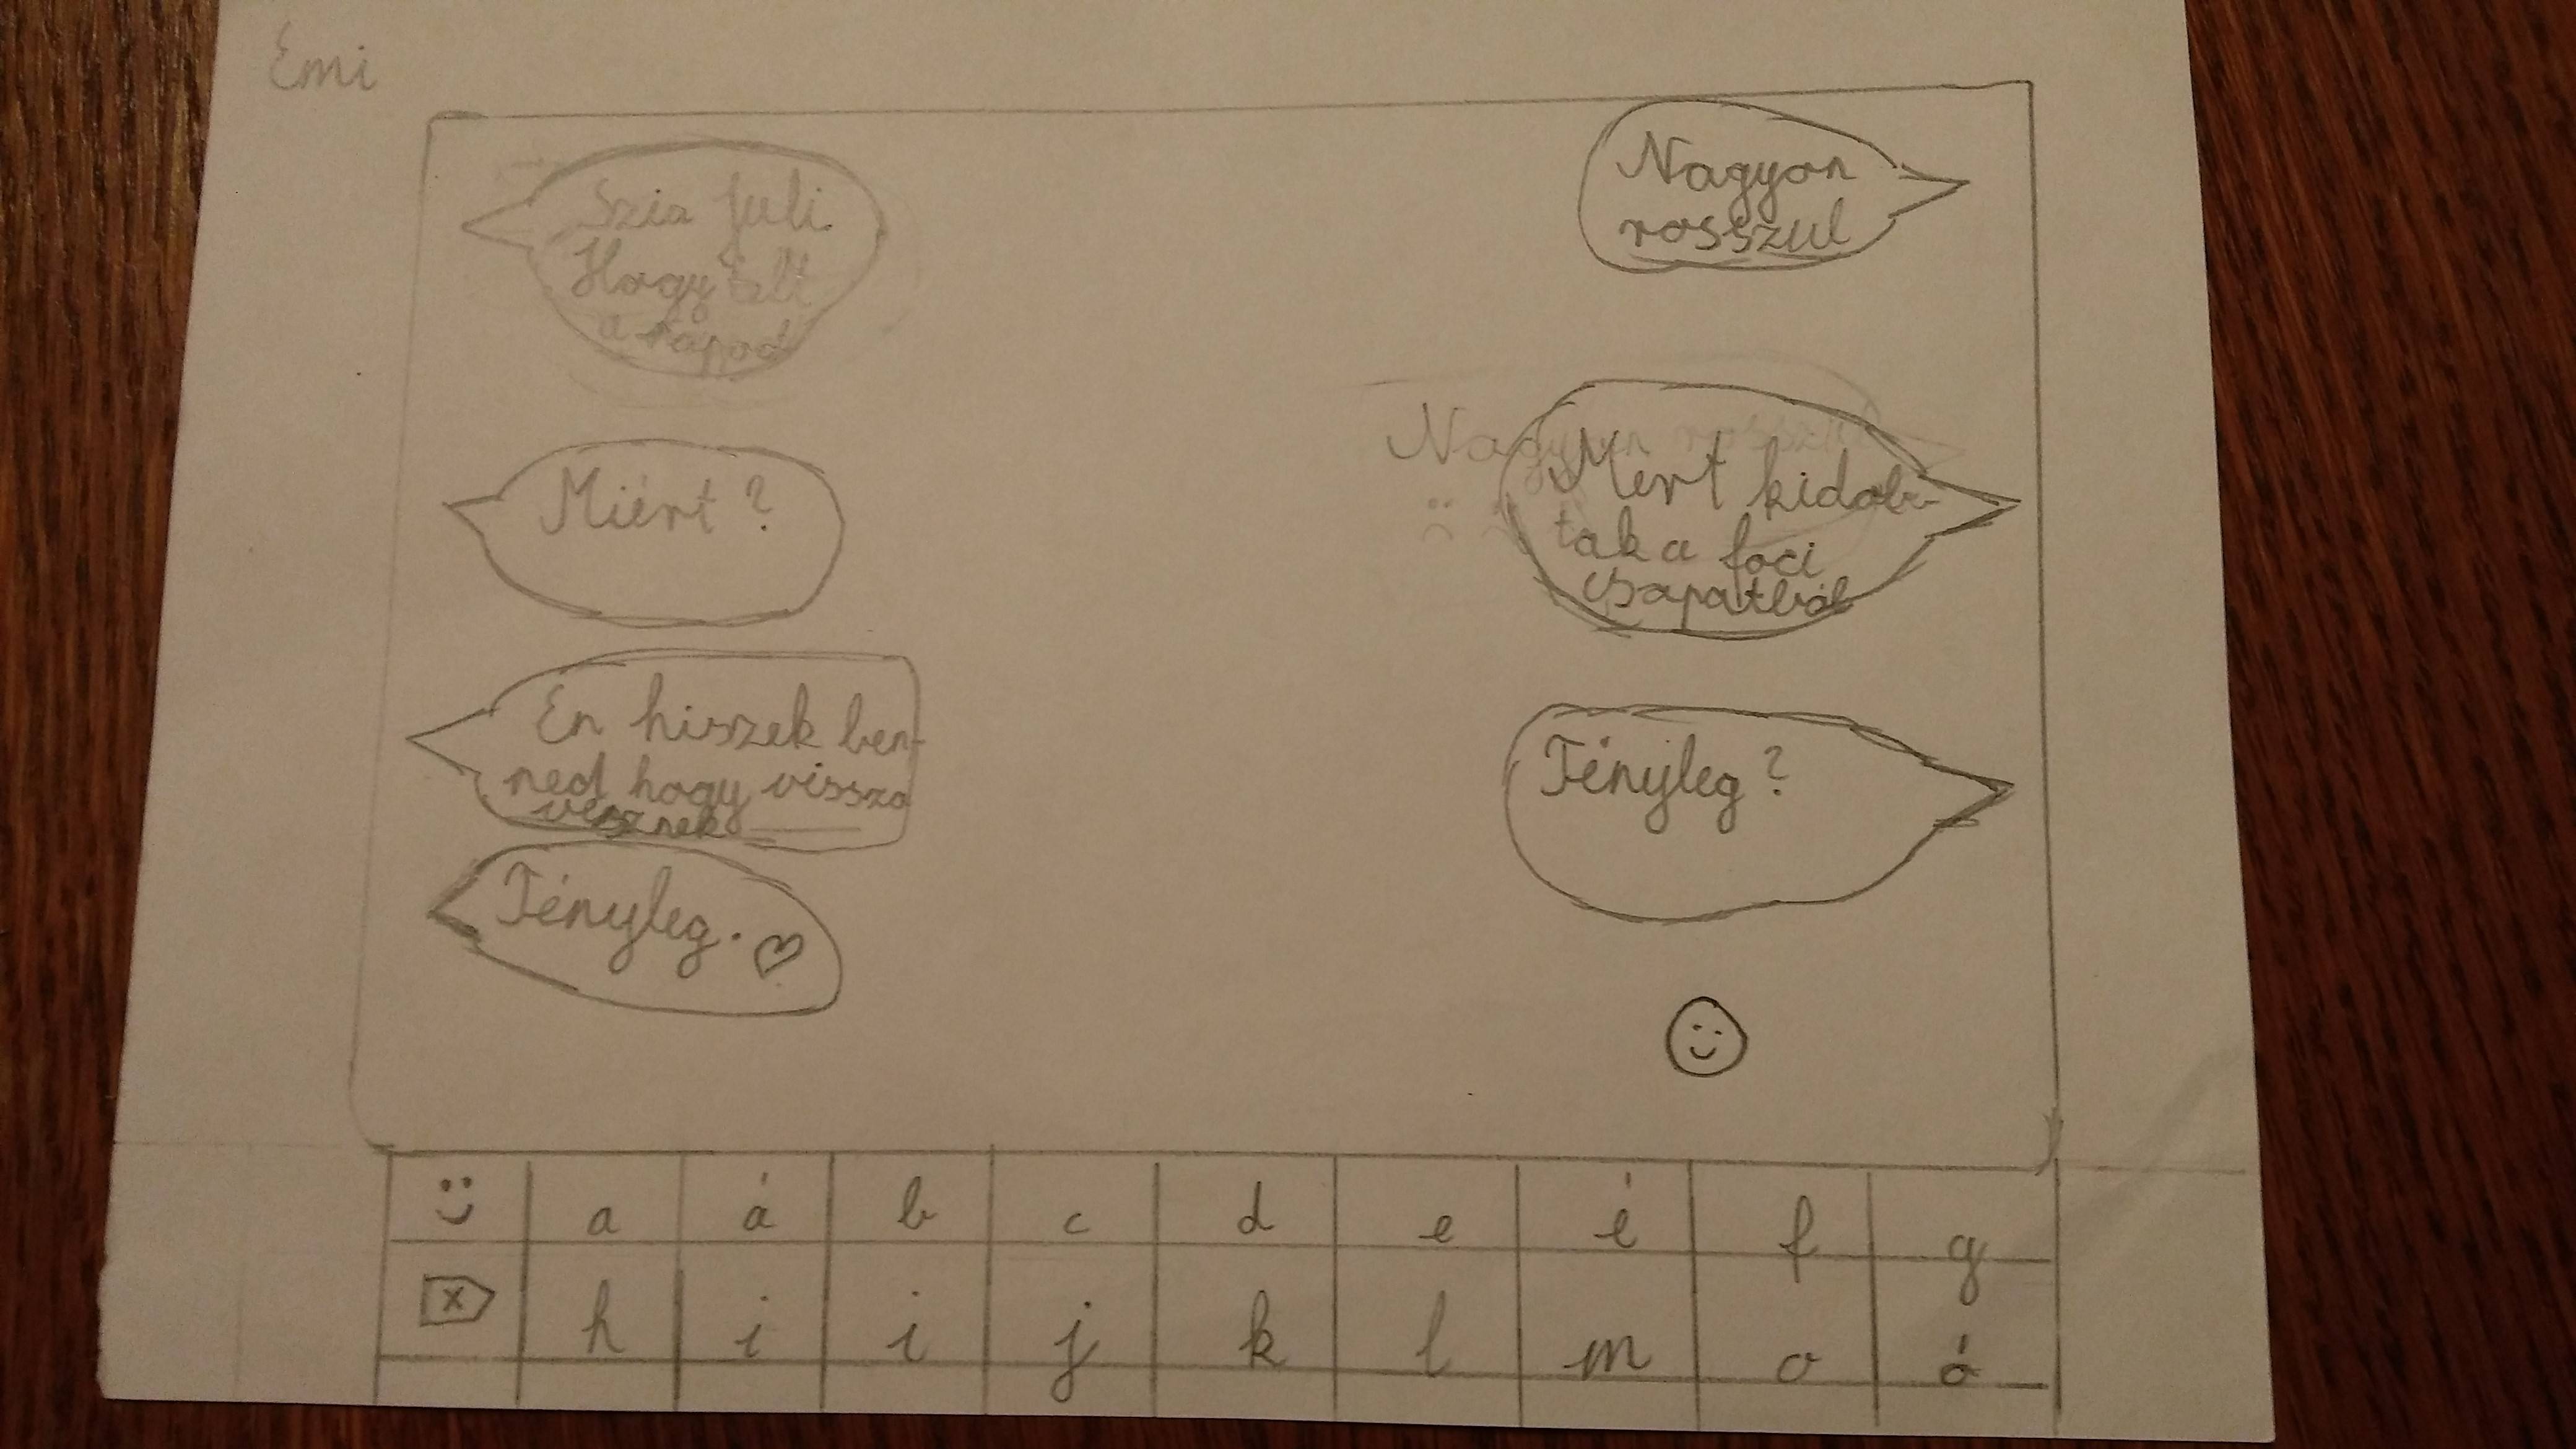 Emi
Szia Juli.
Hogy telt
a napod
Nagyon
rosszul
Miért ?
Nagyon rosszul
Mert kidob-
tak a foci
csapatból
Én hiszek ben-
ned hogy vissza
vesznek
Tényleg ?
Tényleg.
a á b c d e é f g
h i i j k l m o ó